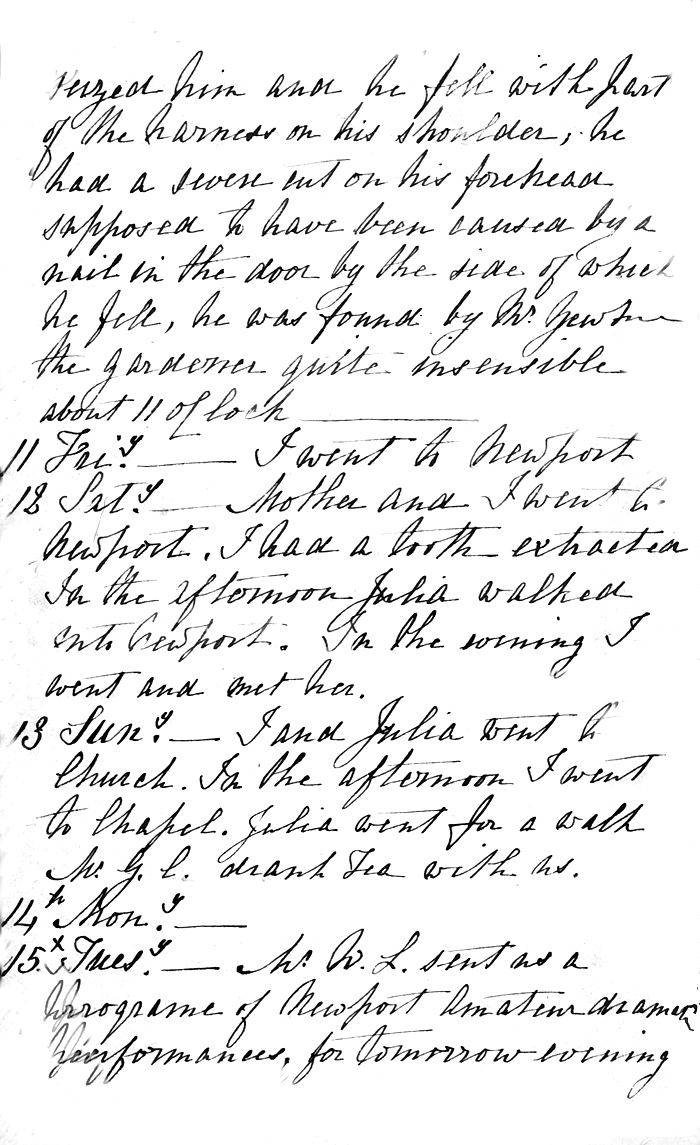 seized him and he fell with part
of the harness on his shoulder, he
had a severe cut on his forehead
supposed to have been caused by a
nail in the door by the side of which
he fell, he was found by Mr. Newton
the gardener quite insensible
about 11 oClock
11 Fri.y — I went to Newport
12 Sat.y — Mother and I went to
Newport. I had a tooth extracted
In the afternoon Julia walked
into Newport. In the evening I
went and met her.
13 Sun.y — I and Julia went to
Church. In the afternoon I went
to Chapel. Julia went for a walk
Mr. G. C. drank Tea with us.
14th Mon.y —
15.x Tues.y — Mr. W. L. sent us a
Programe of Newport Amateur dramatic
Performances, for tomorrow evening